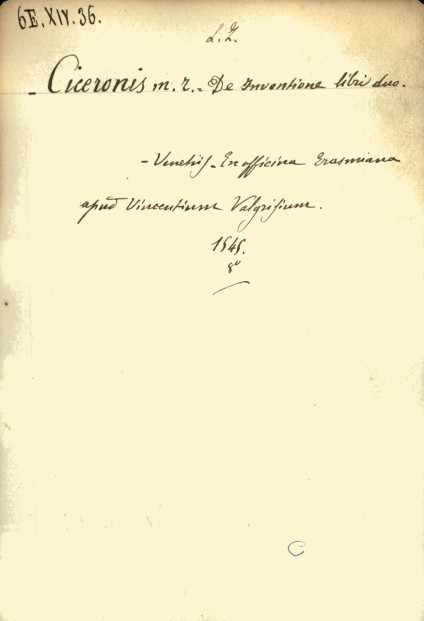 6E.XIV.36.
L. Z.
Ciceronis m. t. - De Inventione libri duo.
- Venetiis - Ex officina Erasmiana
apud Vincentium Valgrisium.
1545.
8º
C